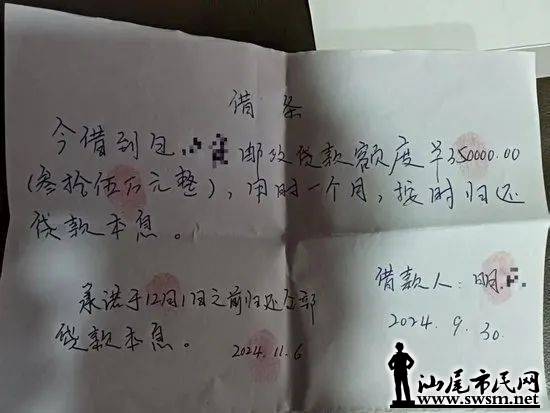 借条
今借到包 邮政贷款额度¥350000.00
(叁拾伍万元整)，用时一个月，按时归还
贷款本息。
借款人：明
2024.9.30.
承诺于12月1日之前归还全部
贷款本息。
2024.11.6
汕尾市民网
www.swsm.net